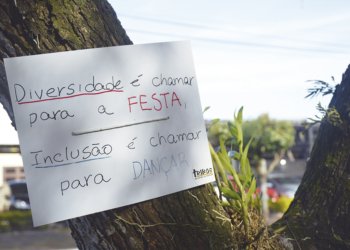 Diversidade é chamar
para a FESTA,
Inclusão é chamar
para DANÇAR